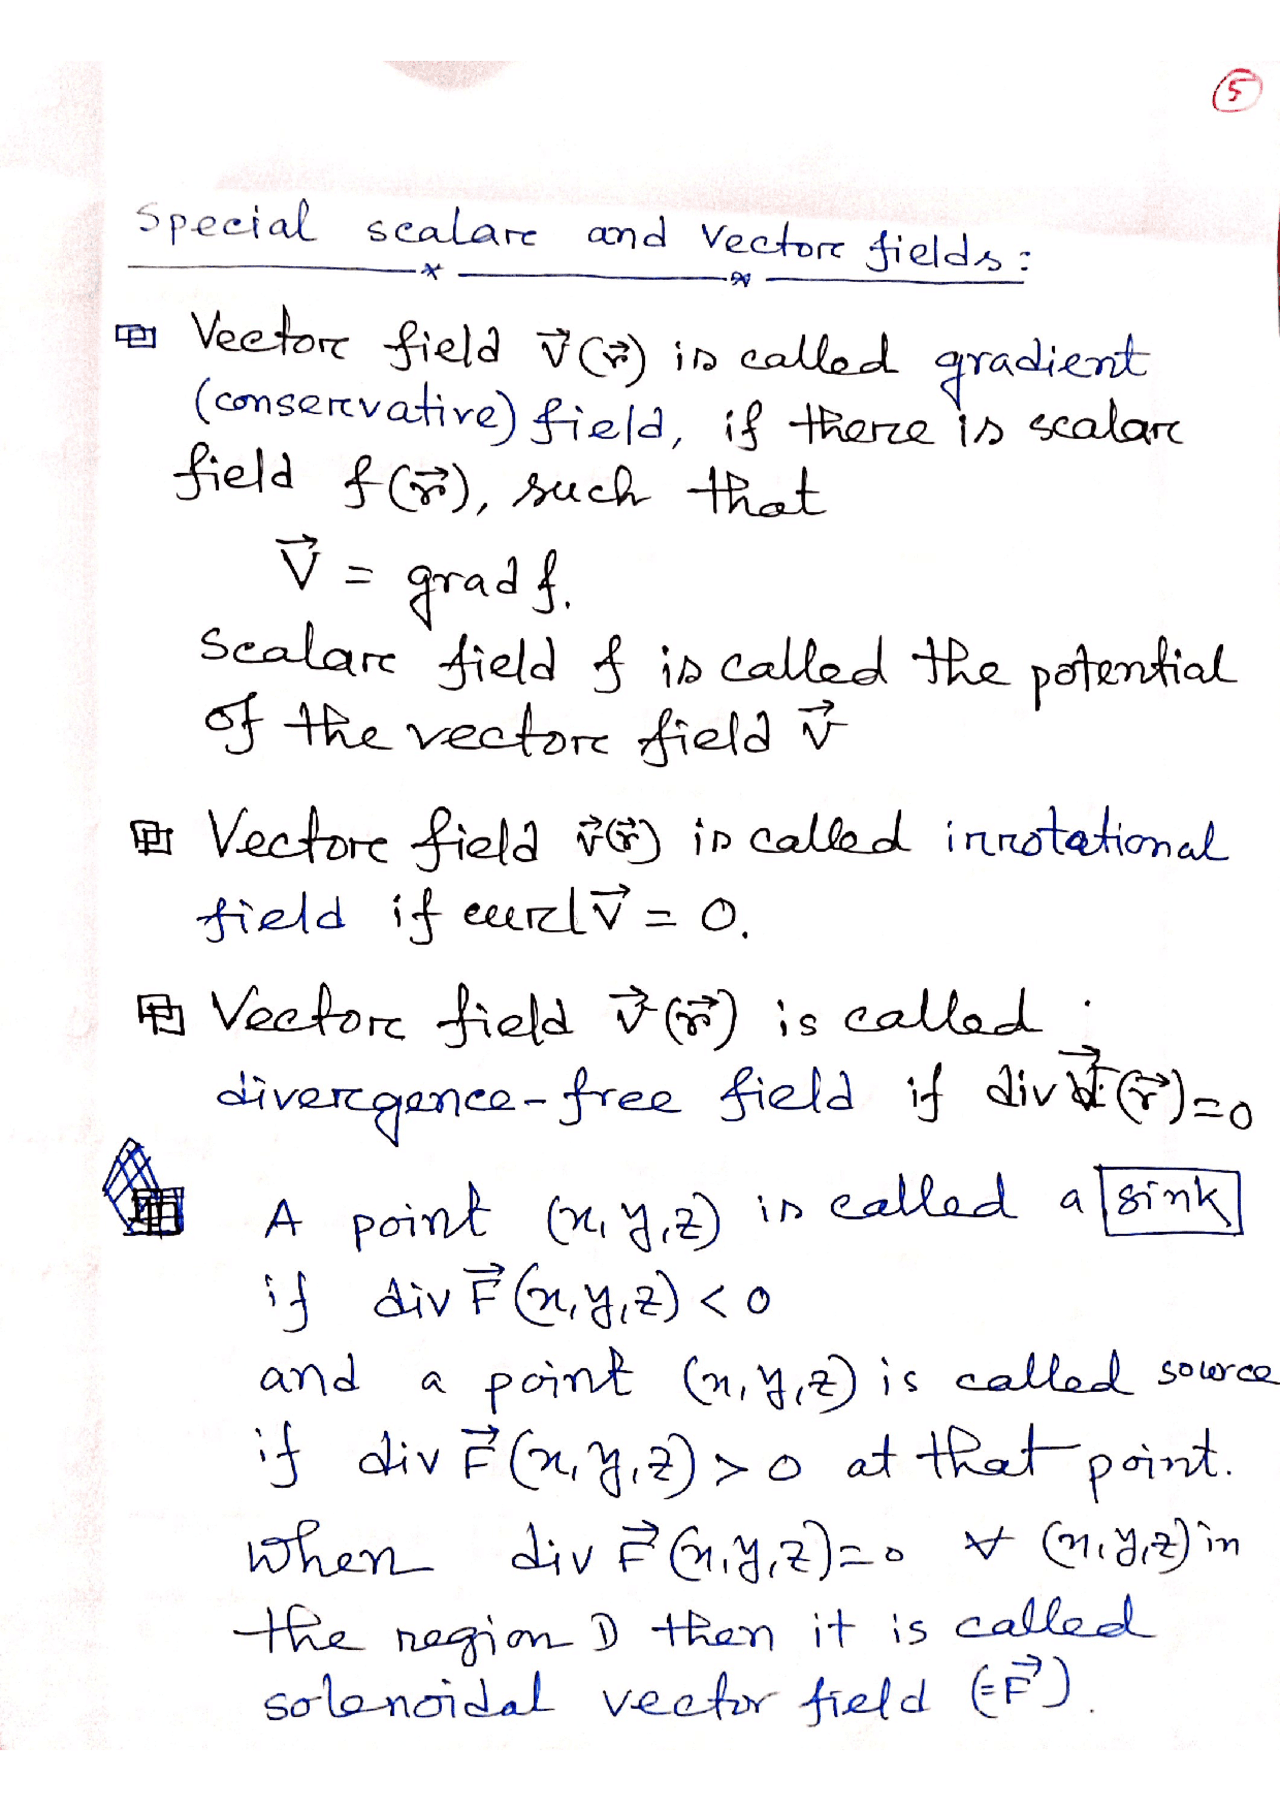 5
Special scalar and Vector fields:
Vector field v⃗(r⃗) is called gradient
(conservative) field, if there is scalar
field f(r⃗), such that
V⃗ = grad f.
Scalar field f is called the potential
of the vector field v⃗
Vector field v⃗(r⃗) is called irrotational
field if curl v⃗ = 0.
Vector field v⃗(r⃗) is called
divergence-free field if div (r⃗)=0
A point (x,y,z) is called a sink
if div F⃗(x,y,z) < 0
and a point (x,y,z) is called source
if div F⃗(x,y,z) > 0 at that point.
When div F⃗(x,y,z)=0 ∀ (x,y,z) in
the region D then it is called
solenoidal vector field (=F⃗).